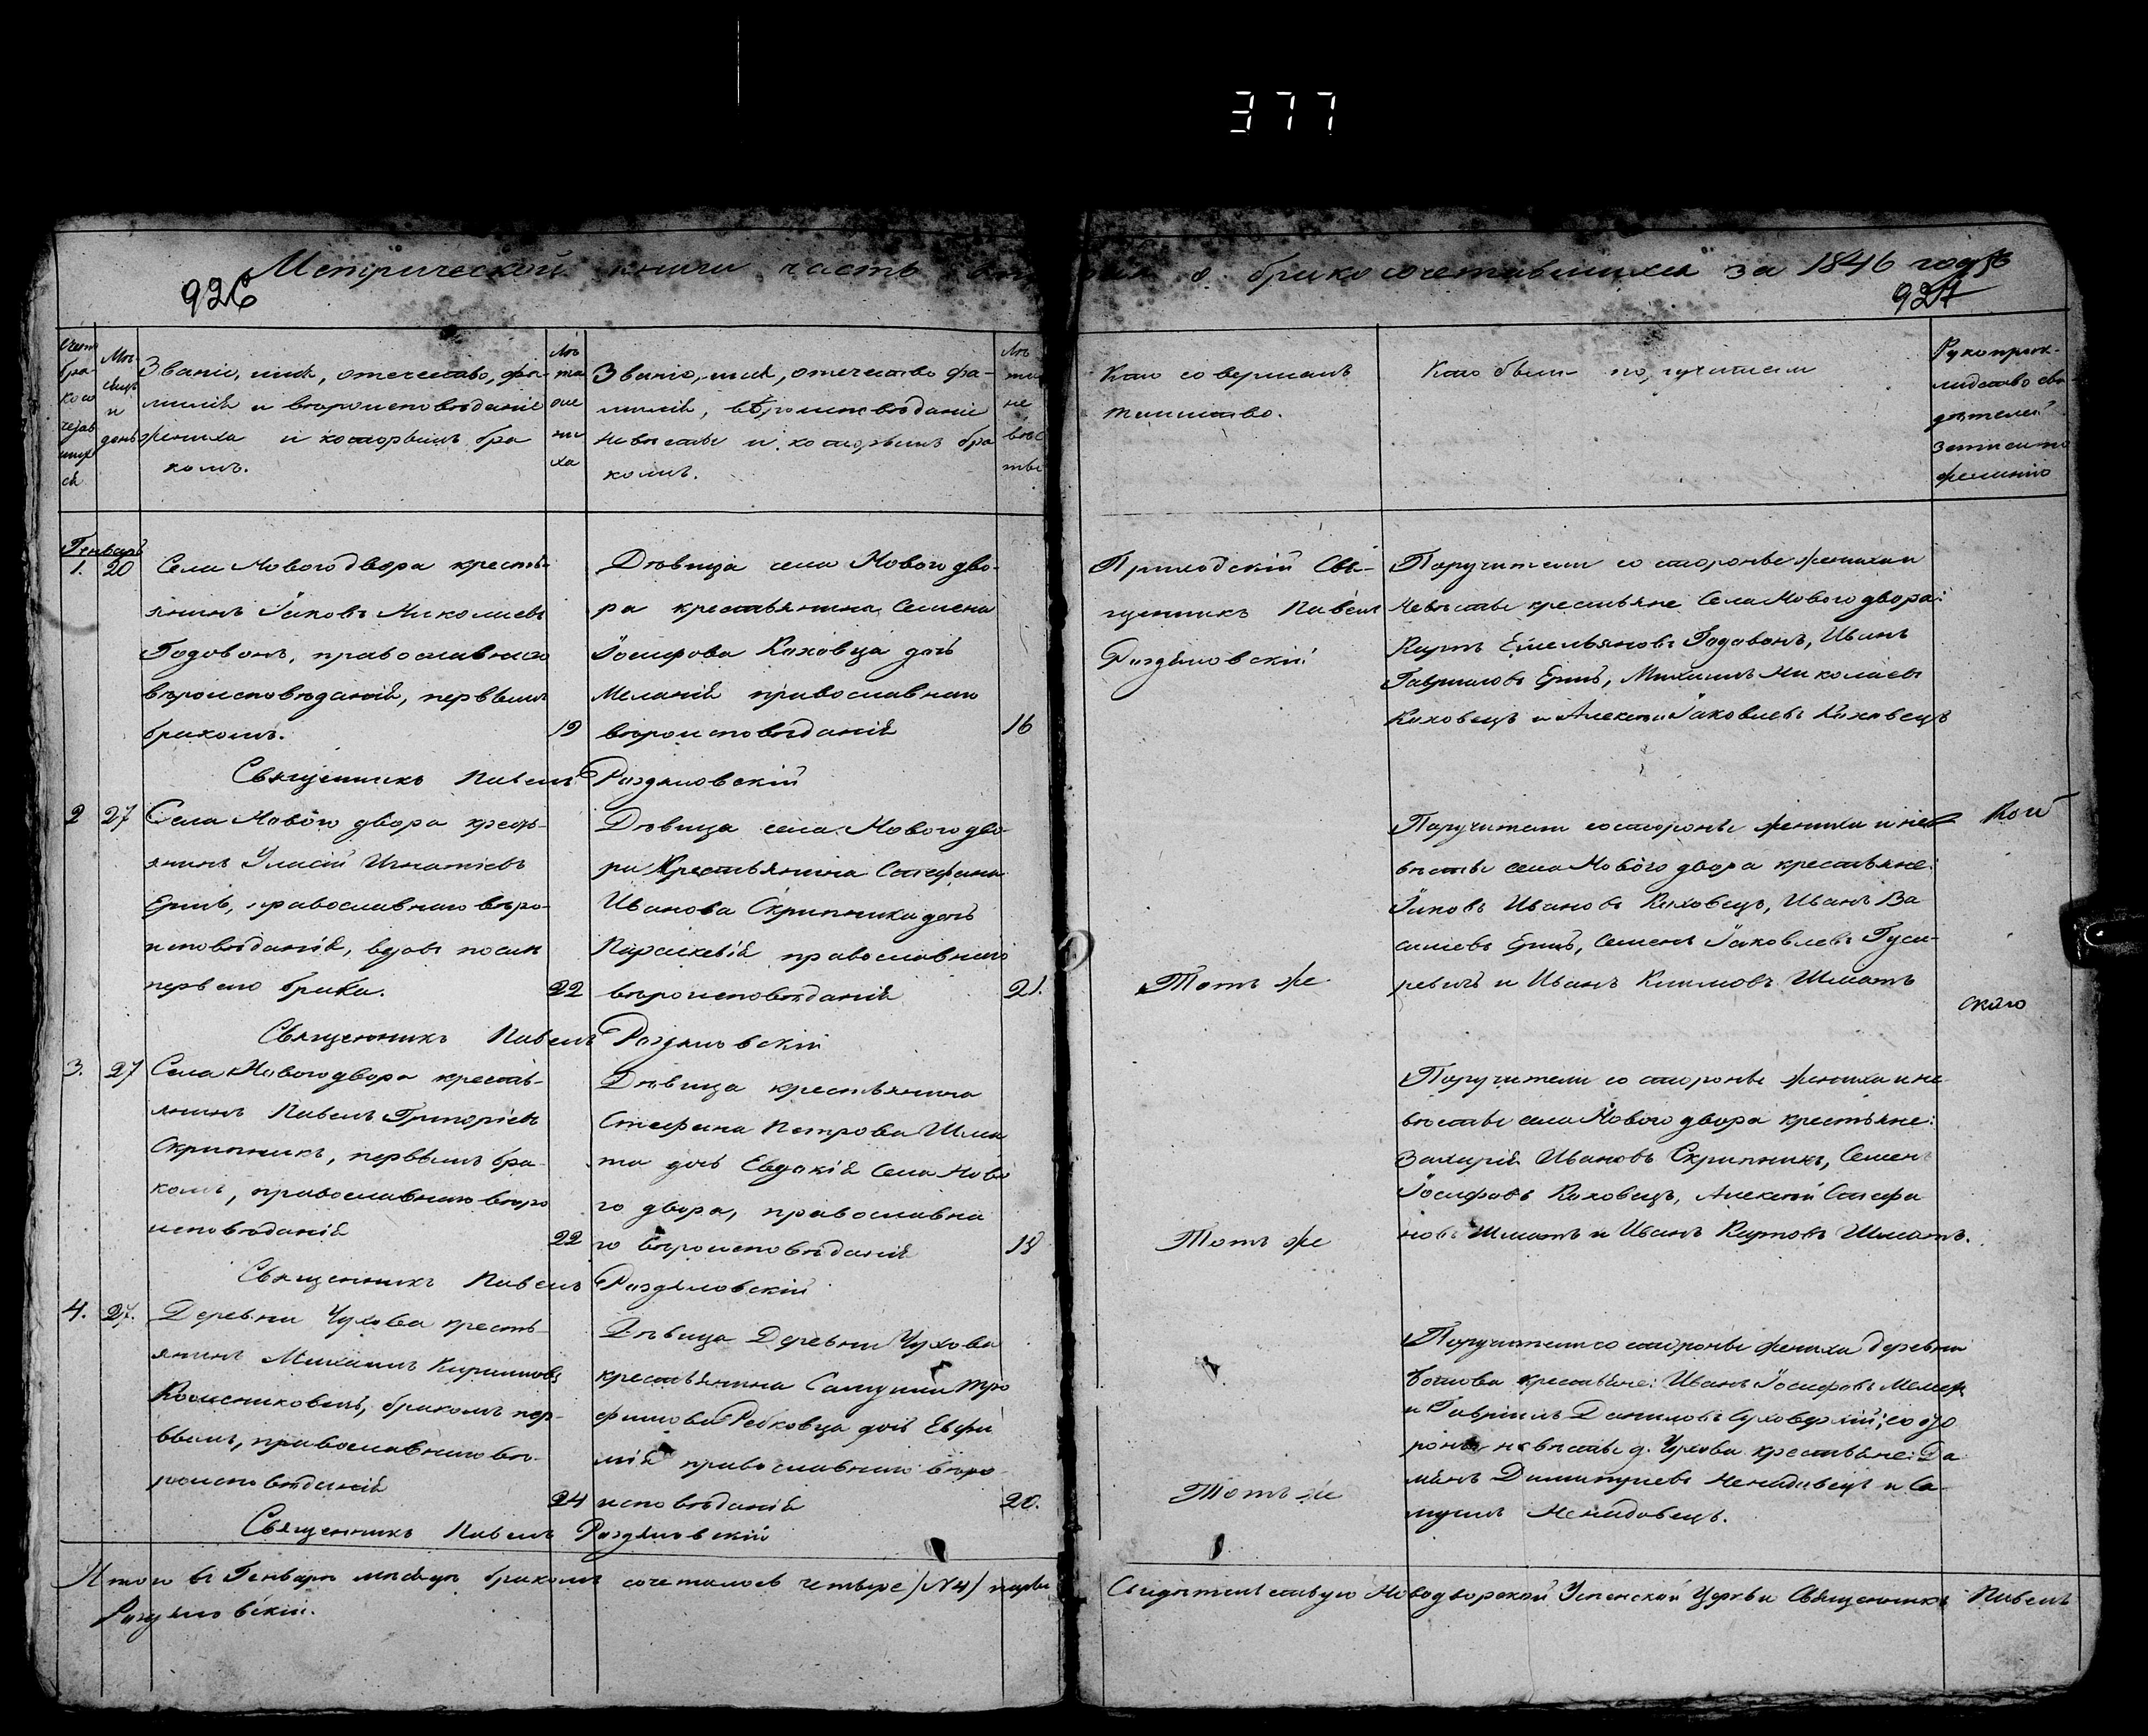 377
Метрической книги часть о бракосочетавшихся за 1846 годъ
926
927
Счетъ
бра-
косо
четав
шихъ
ся
Мѣ-
сяцъ
и
день
Званіе, имя, отечество, фа-
милія и вѣроисповѣданіе
жениха и которымъ бра
комъ.
Лѣ
та
же
ни
ха
Званіе, имя, отечество фа-
милія, вѣроисповѣданіе
невѣсты и которымъ бра
комъ.
Лѣ
та
не
вѣс
ты
Кто совершалъ
таинство.
Кто были поручители
Рукоприк-
ладство сви-
дѣтелей
записи по
желанію
Генварь
1. 20
Села Нового двора кресть-
янинъ Іаковъ Николаевъ
Годовонъ, православнаго
вѣроисповѣданія, первымъ
бракомъ.
19
Дѣвица села Нового дво-
ра крестьянина Семена
Іосифова Каховца дочь
Меланія православнаго
вѣроисповѣданія
16
Приходскій Свя-
щенникъ Павелъ
Раздяловскій
Поручители со стороны жениха и
невѣсты крестьяне Села Нового двора:
Карпъ Емельяновъ Годовонъ, Иванъ
Гавриловъ Ершъ, Михаилъ Николаевъ
Каховецъ и Алексѣй Іаковлевъ Каховецъ
Священникъ Павелъ Раздяловскій
2 27
Села Нового двора кресть-
янинъ Уласій Игнатіевъ
Ершъ, православнаго вѣро-
исповѣданія, вдовъ послѣ
перваго брака.
22
Дѣвица села Нового дво-
ра Крестьянина Стефана
Иванова Скрипника дочь
Параскевія православнаго
вѣроисповѣданія
21.
Тотъ же
Поручители со стороны жениха и не
вѣсты села Нового двора крестьяне:
Іаковъ Ивановъ Каховецъ, Иванъ Ва
силіевъ Ершъ, Семенъ Іаковлевъ Гуса-
ревичъ и Иванъ Климовъ Шматъ
Кой
скаго
Священникъ Павелъ Раздяловскій
3. 27
Села Нового двора кресть-
янинъ Павелъ Григоріевъ
Скрипникъ, первымъ бра-
комъ, православнаго вѣро
исповѣданія
22
Дѣвица крестьянина
Стефана Петрова Шма
та дочь Евдокія Села Ново
го двора, православна
го вѣроисповѣданія
18
Тотъ же
Поручители со стороны жениха и не-
вѣсты села Нового двора крестьяне:
Захарія Ивановъ Скрипникъ, Семенъ
Іосифовъ Каховецъ, Алексѣй Стефа
новъ Шматъ и Иванъ Карповъ Шматъ.
Священникъ Павелъ Раздяловскій
4. 27.
Деревни Чухова кресть-
янинъ Михаилъ Кирилловъ
Колесниковецъ, бракомъ пер-
вымъ, православнаго вѣ-
роисповѣданія
24
Дѣвица Деревни Чухова
крестьянина Самуила Тро
фимова Редковца дочь Евфи
мія православнаго вѣро-
исповѣданія
20.
Тотъ же
Поручители со стороны жениха деревни
крестьяне: Иванъ Іосифовъ
и Гавріилъ Даниловъ Суховерхій; со сто
роны невѣсты д. Чухова крестьяне: Да
міянъ Димитріевъ Ненадовецъ и Са-
муилъ Ненадовецъ.
Священникъ Павелъ Раздяловскій
Итого въ Генварѣ мѣсяцѣ бракомъ сочеталось четыре /№4/ пары
Свидѣтельствую Новодворской Успенской Церкви Священникъ Павелъ
Раздяловскій.